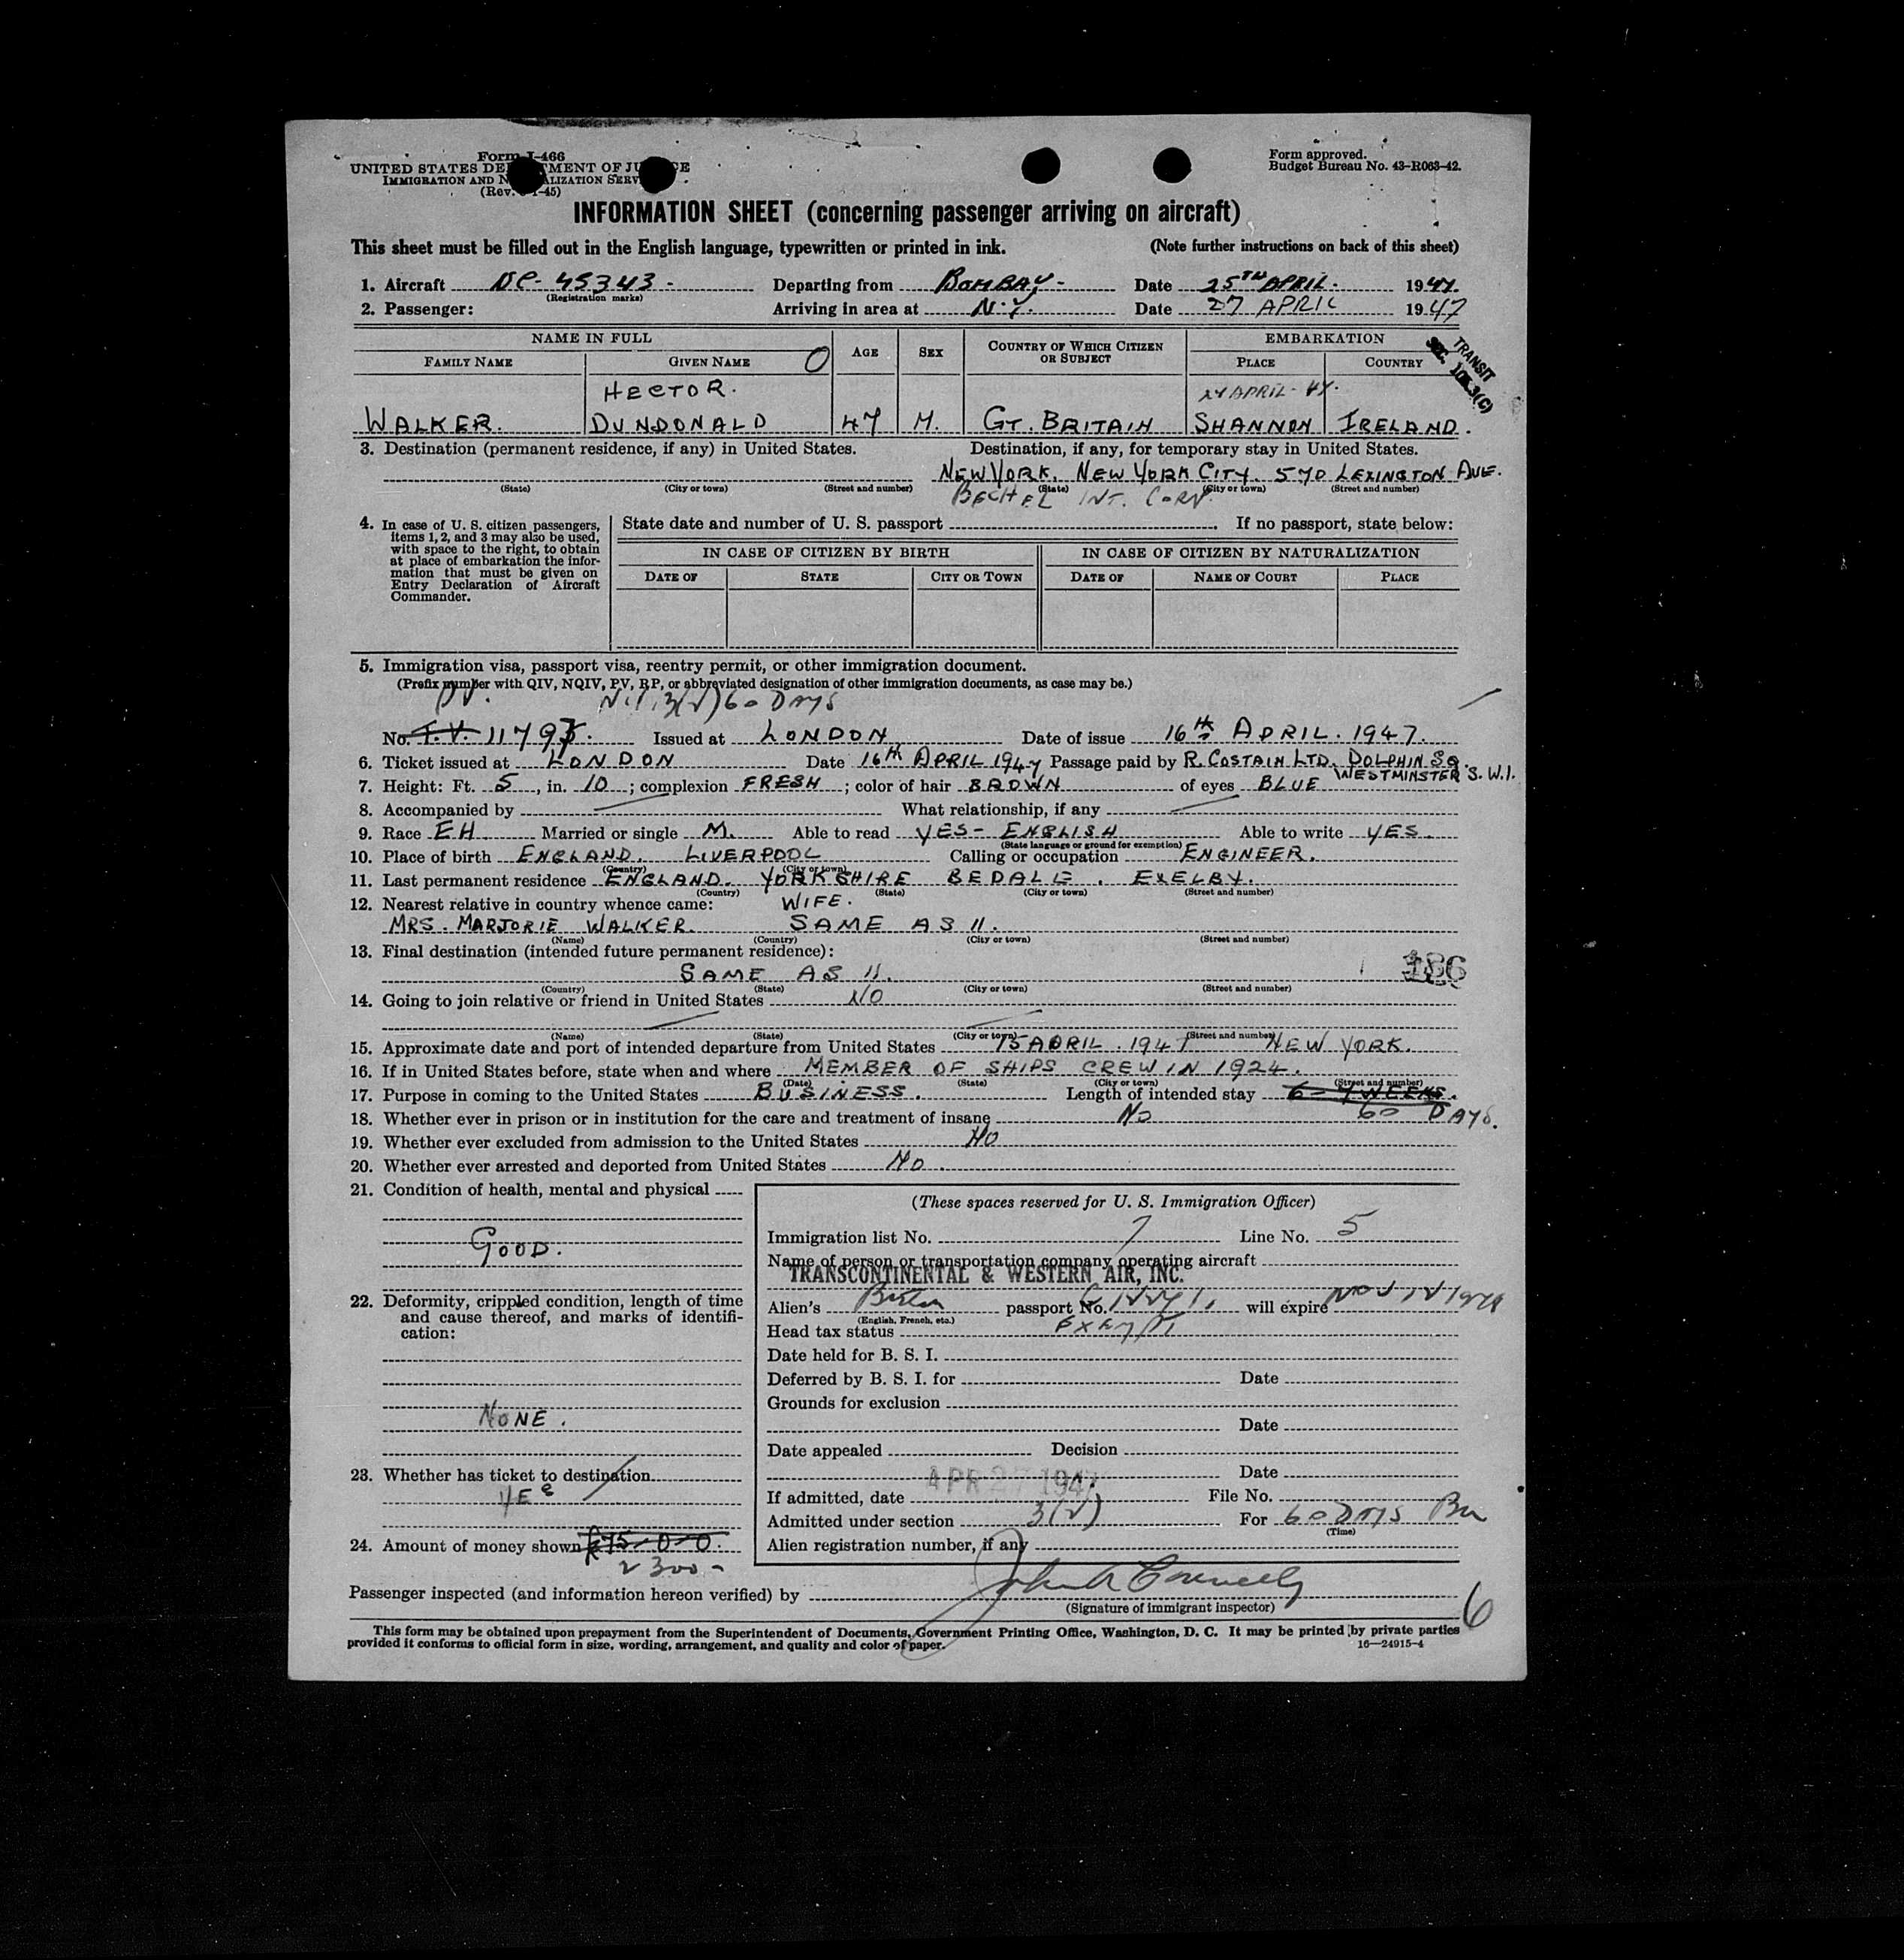 Form I-466
UNITED STATES DEPARTMENT OF JUSTICE
IMMIGRATION AND NATURALIZATION SERVICE
(Rev. -1-45)
Form approved.
Budget Bureau No. 43-R063-42.
INFORMATION SHEET (concerning passenger arriving on aircraft)
This sheet must be filled out in the English language, typewritten or printed in ink. (Note further instructions on back of this sheet)
1. Aircraft DC-45343- Departing from BOMBAY- Date 25TH APRIL. 1947.
(Registration marks)
2. Passenger: Arriving in area at N.Y. Date 27 APRIL 1947
NAME IN FULL AGE SEX COUNTRY OF WHICH CITIZEN OR SUBJECT EMBARKATION
FAMILY NAME GIVEN NAME O PLACE COUNTRY
TRANSIT
SEC. 103.3(C)
HECTOR. 24 APRIL-47.
WALKER. DUNDONALD 47 M. GT. BRITAIN SHANNON IRELAND.
3. Destination (permanent residence, if any) in United States. Destination, if any, for temporary stay in United States.
NEW YORK. NEW YORK CITY. 570 LEXINGTON AVE.
(State) (City or town) (Street and number) (State) (City or town) (Street and number)
BECHTEL INT. CORP.
4. In case of U. S. citizen passengers, items 1, 2, and 3 may also be used, with space to the right, to obtain at place of embarkation the information that must be given on Entry Declaration of Aircraft Commander.
State date and number of U. S. passport If no passport, state below:
IN CASE OF CITIZEN BY BIRTH IN CASE OF CITIZEN BY NATURALIZATION
DATE OF STATE CITY OR TOWN DATE OF NAME OF COURT PLACE
5. Immigration visa, passport visa, reentry permit, or other immigration document.
(Prefix number with QIV, NQIV, PV, RP, or abbreviated designation of other immigration documents, as case may be.)
PV. 3(2) 60 DAYS
No. T.V. 11793. Issued at LONDON Date of issue 16TH APRIL. 1947.
6. Ticket issued at LONDON Date 16TH APRIL 1947 Passage paid by R. COSTAIN LTD. DOLPHIN SQ.
WESTMINSTER S.W.1.
7. Height: Ft. 5, in. 10; complexion FRESH; color of hair BROWN of eyes BLUE
8. Accompanied by What relationship, if any
9. Race EH Married or single M. Able to read YES- ENGLISH Able to write YES.
(State language or ground for exemption)
10. Place of birth ENGLAND. LIVERPOOL Calling or occupation ENGINEER.
(Country) (City or town)
11. Last permanent residence ENGLAND. YORKSHIRE BEDALE. EXELBY.
(Country) (State) (City or town) (Street and number)
12. Nearest relative in country whence came: WIFE.
MRS. MARJORIE WALKER. SAME AS 11.
(Name) (Country) (City or town) (Street and number)
13. Final destination (intended future permanent residence):
SAME AS 11.
(Country) (State) (City or town) (Street and number)
14. Going to join relative or friend in United States NO
(Name) (State) (City or town) (Street and number)
15. Approximate date and port of intended departure from United States 15 APRIL. 1947 NEW YORK.
16. If in United States before, state when and where MEMBER OF SHIPS CREW IN 1924.
(Date) (State) (City or town) (Street and number)
17. Purpose in coming to the United States BUSINESS. Length of intended stay 6-7 WEEKS.
60 DAYS.
18. Whether ever in prison or in institution for the care and treatment of insane NO
19. Whether ever excluded from admission to the United States NO
20. Whether ever arrested and deported from United States NO.
21. Condition of health, mental and physical
GOOD.
22. Deformity, crippled condition, length of time and cause thereof, and marks of identification:
NONE.
23. Whether has ticket to destination
YES
24. Amount of money shown £75-0-0.
2300-
(These spaces reserved for U. S. Immigration Officer)
Immigration list No. 7 Line No. 5
Name of person or transportation company operating aircraft
TRANSCONTINENTAL & WESTERN AIR, INC.
Alien's passport No. will expire
(English, French, etc.)
Head tax status Exempt
Date held for B. S. I.
Deferred by B. S. I. for Date
Grounds for exclusion
Date
Date appealed Decision
Date
If admitted, date APR 27 1947 File No.
Admitted under section 3(2) For 60 DAYS
(Time)
Alien registration number, if any
Passenger inspected (and information hereon verified) by John Connelly
(Signature of immigrant inspector)
6
This form may be obtained upon prepayment from the Superintendent of Documents, Government Printing Office, Washington, D. C. It may be printed by private parties
provided it conforms to official form in size, wording, arrangement, and quality and color of paper. 16—24915-4